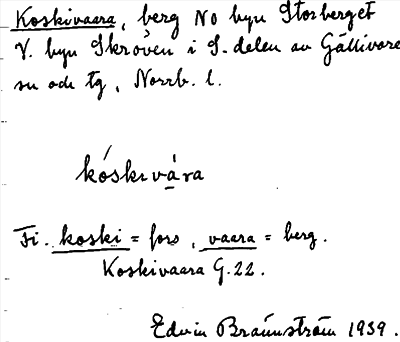 Koskivaara, berg NO byn Storberget
V. byn Skröven i S. delen av Gällivare
sn och tg, Norrb. l.
kóskivára
Fi. koski = fors, vaara = berg.
Koskivaara G.22.
Edvin Brännström 1939.